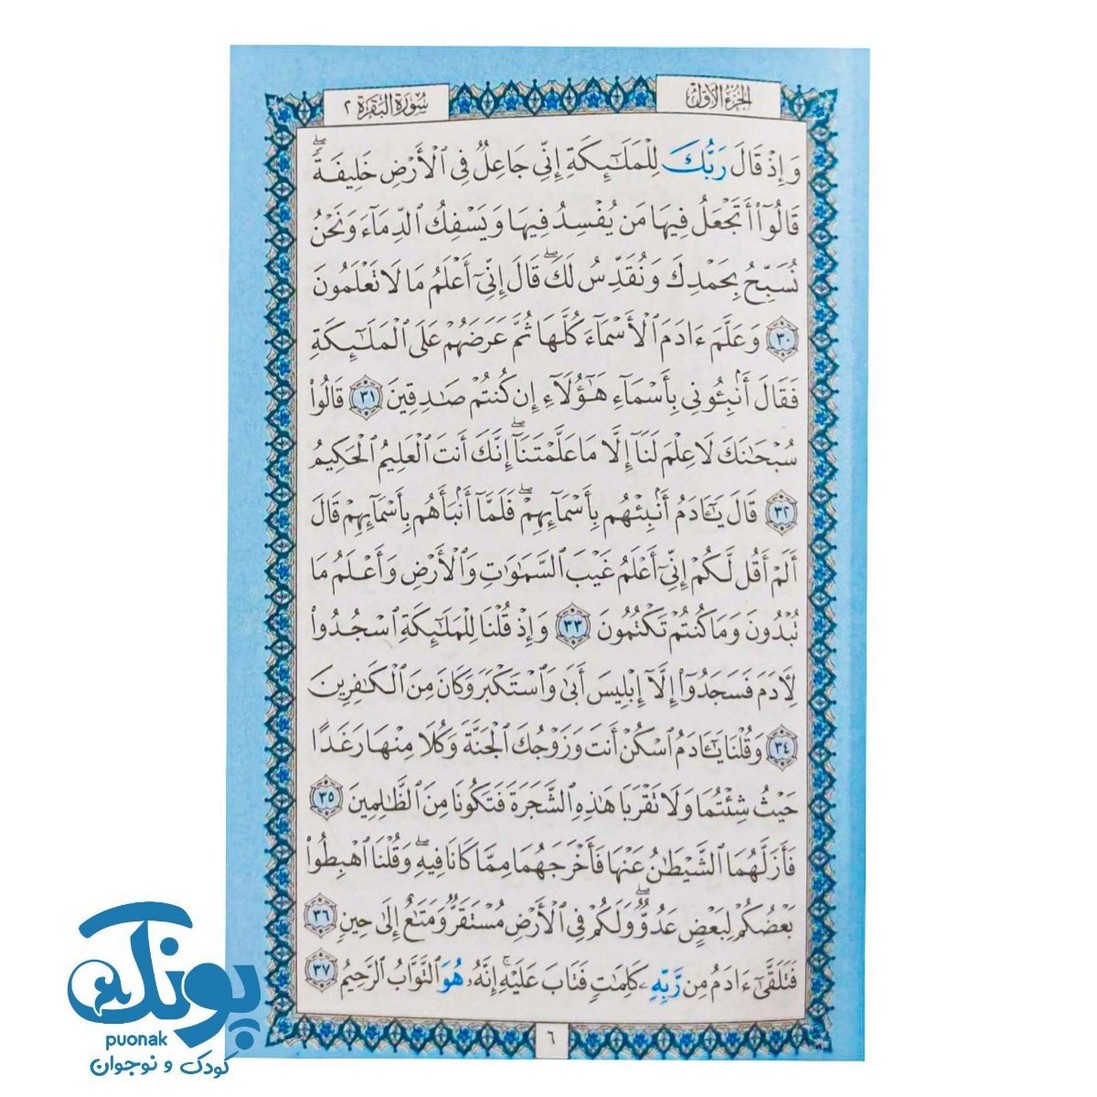 الجزء الأول
سورة البقرة ٢
وَإِذْ قَالَ رَبُّكَ لِلْمَلَٰٓئِكَةِ إِنِّى جَاعِلٌ فِى ٱلْأَرْضِ خَلِيفَةً ۖ
قَالُوٓا۟ أَتَجْعَلُ فِيهَا مَن يُفْسِدُ فِيهَا وَيَسْفِكُ ٱلدِّمَآءَ وَنَحْنُ
نُسَبِّحُ بِحَمْدِكَ وَنُقَدِّسُ لَكَ ۖ قَالَ إِنِّىٓ أَعْلَمُ مَا لَا تَعْلَمُونَ
٣٠ وَعَلَّمَ ءَادَمَ ٱلْأَسْمَآءَ كُلَّهَا ثُمَّ عَرَضَهُمْ عَلَى ٱلْمَلَٰٓئِكَةِ
فَقَالَ أَنۢبِـُٔونِى بِأَسْمَآءِ هَٰٓؤُلَآءِ إِن كُنتُمْ صَٰدِقِينَ ٣١ قَالُوا۟
سُبْحَٰنَكَ لَا عِلْمَ لَنَآ إِلَّا مَا عَلَّمْتَنَآ ۖ إِنَّكَ أَنتَ ٱلْعَلِيمُ ٱلْحَكِيمُ
٣٢ قَالَ يَٰٓـَٔادَمُ أَنۢبِئْهُم بِأَسْمَآئِهِمْ ۖ فَلَمَّآ أَنۢبَأَهُم بِأَسْمَآئِهِمْ قَالَ
أَلَمْ أَقُل لَّكُمْ إِنِّىٓ أَعْلَمُ غَيْبَ ٱلسَّمَٰوَٰتِ وَٱلْأَرْضِ وَأَعْلَمُ مَا
تُبْدُونَ وَمَا كُنتُمْ تَكْتُمُونَ ٣٣ وَإِذْ قُلْنَا لِلْمَلَٰٓئِكَةِ ٱسْجُدُوا۟
لِءَادَمَ فَسَجَدُوٓا۟ إِلَّآ إِبْلِيسَ أَبَىٰ وَٱسْتَكْبَرَ وَكَانَ مِنَ ٱلْكَٰفِرِينَ
٣٤ وَقُلْنَا يَٰٓـَٔادَمُ ٱسْكُنْ أَنتَ وَزَوْجُكَ ٱلْجَنَّةَ وَكُلَا مِنْهَا رَغَدًا
حَيْثُ شِئْتُمَا وَلَا تَقْرَبَا هَٰذِهِ ٱلشَّجَرَةَ فَتَكُونَا مِنَ ٱلظَّٰلِمِينَ ٣٥
فَأَزَلَّهُمَا ٱلشَّيْطَٰنُ عَنْهَا فَأَخْرَجَهُمَا مِمَّا كَانَا فِيهِ ۖ وَقُلْنَا ٱهْبِطُوا۟
بَعْضُكُمْ لِبَعْضٍ عَدُوٌّ ۖ وَلَكُمْ فِى ٱلْأَرْضِ مُسْتَقَرٌّ وَمَتَٰعٌ إِلَىٰ حِينٍ ٣٦
فَتَلَقَّىٰٓ ءَادَمُ مِن رَّبِّهِۦ كَلِمَٰتٍ فَتَابَ عَلَيْهِ ۚ إِنَّهُۥ هُوَ ٱلتَّوَّابُ ٱلرَّحِيمُ ٣٧
٦
پونک
puonak
کودک و نوجوان